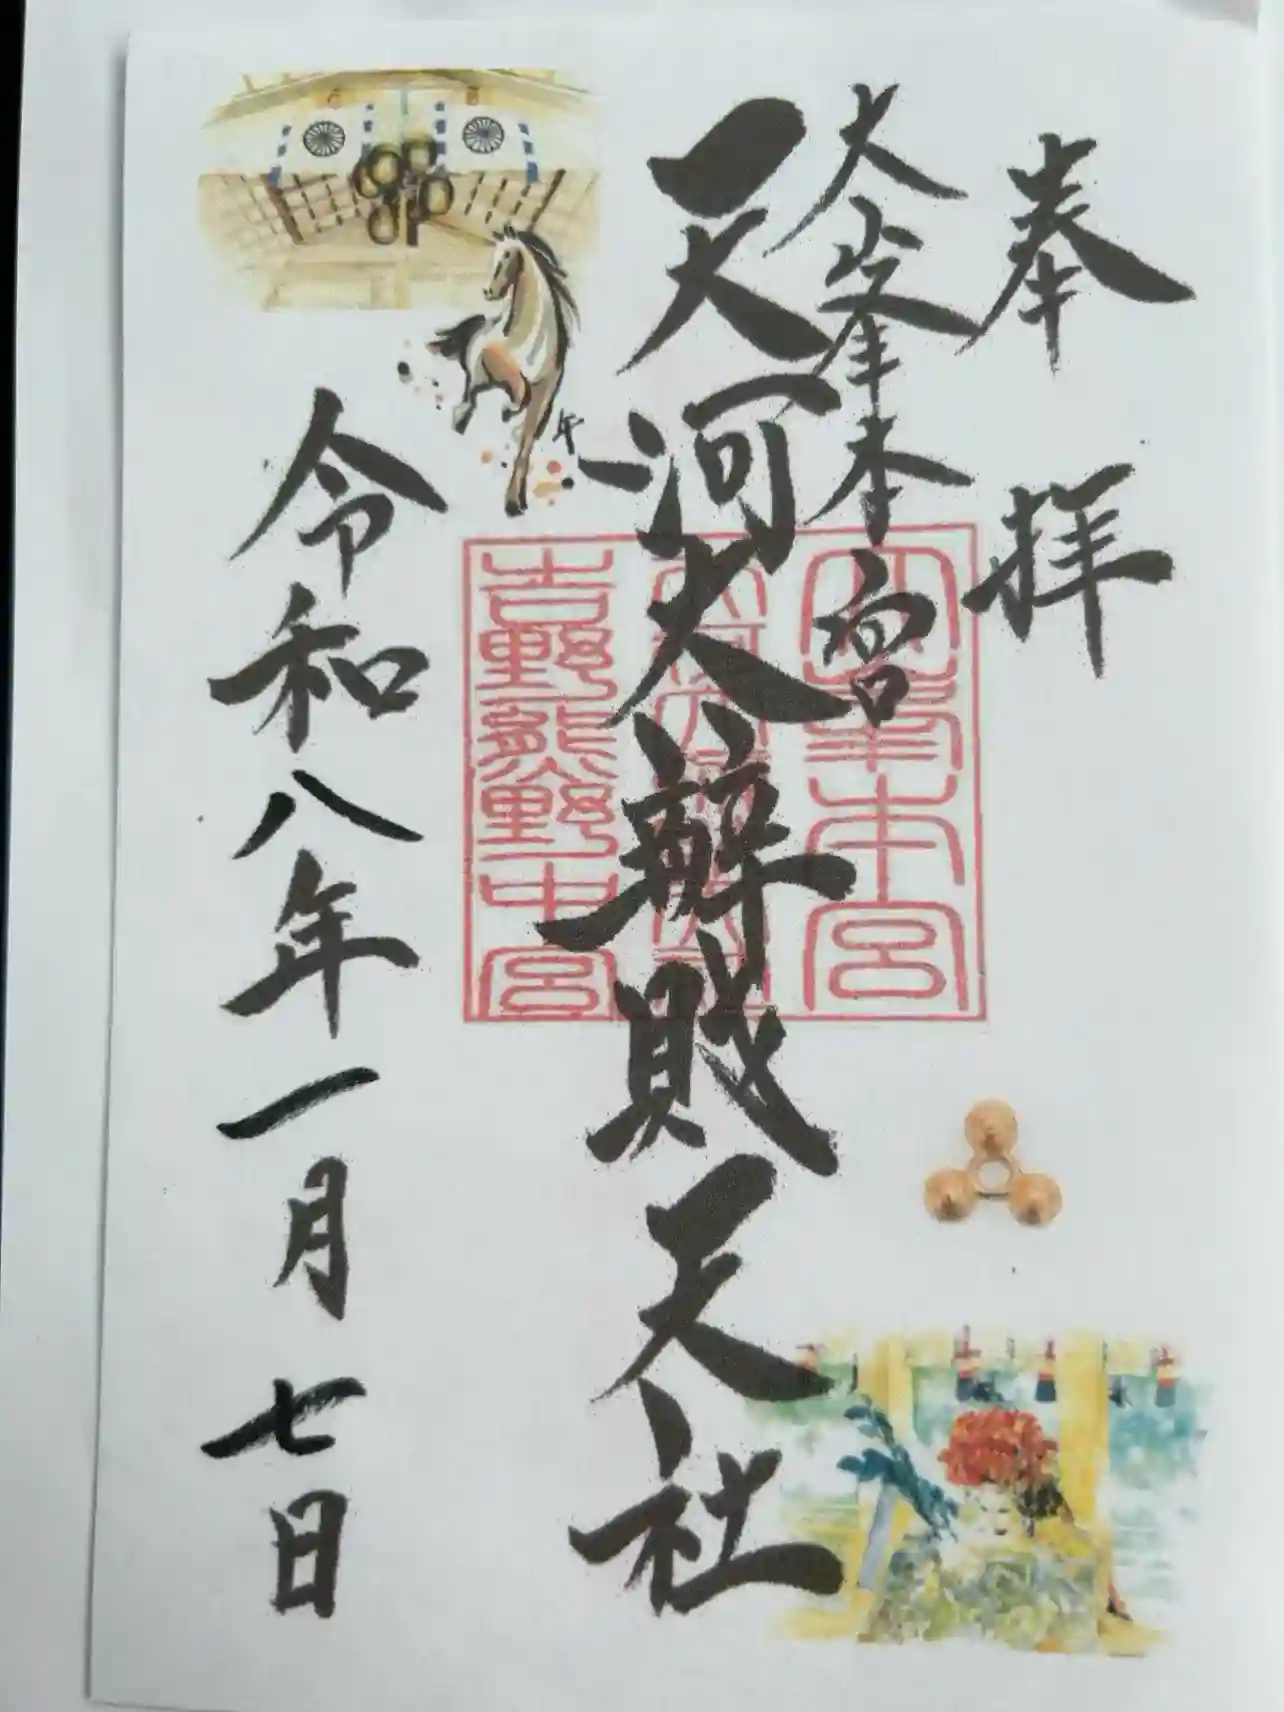 奉拝
大峯本宮
天河大辨財天社
令和八年一月七日
午
本宮
吉野熊野中宮